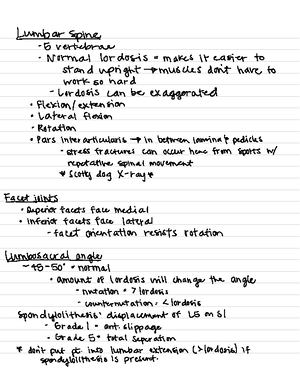 Lumbar Spine
- 5 vertebrae
- Normal lordosis = makes it easier to
stand upright → muscles don't have to
work so hard
- Lordosis can be exaggerated
• Flexion/extension
• Lateral flexion
• Rotation
• Pars interarticularis → in between lamina & pedicles
- stress fractures can occur here from sports w/
repetative spinal movement
* Scotty dog X-ray *
Facet joints
• Superior facets face medial
• Inferior facets face lateral
- facet orientation resists rotation
Lumbosacral angle
~45-50° = normal
• amount of lordosis will change the angle
- nutation = > lordosis
- counternutation = < lordosis
Spondylolithesis: displacement of L5 on S1
- Grade 1 = ant. slippage
- Grade 5 = total separation
* don't put pt. into lumbar extension (> lordosis) if
spondylolithesis is present.